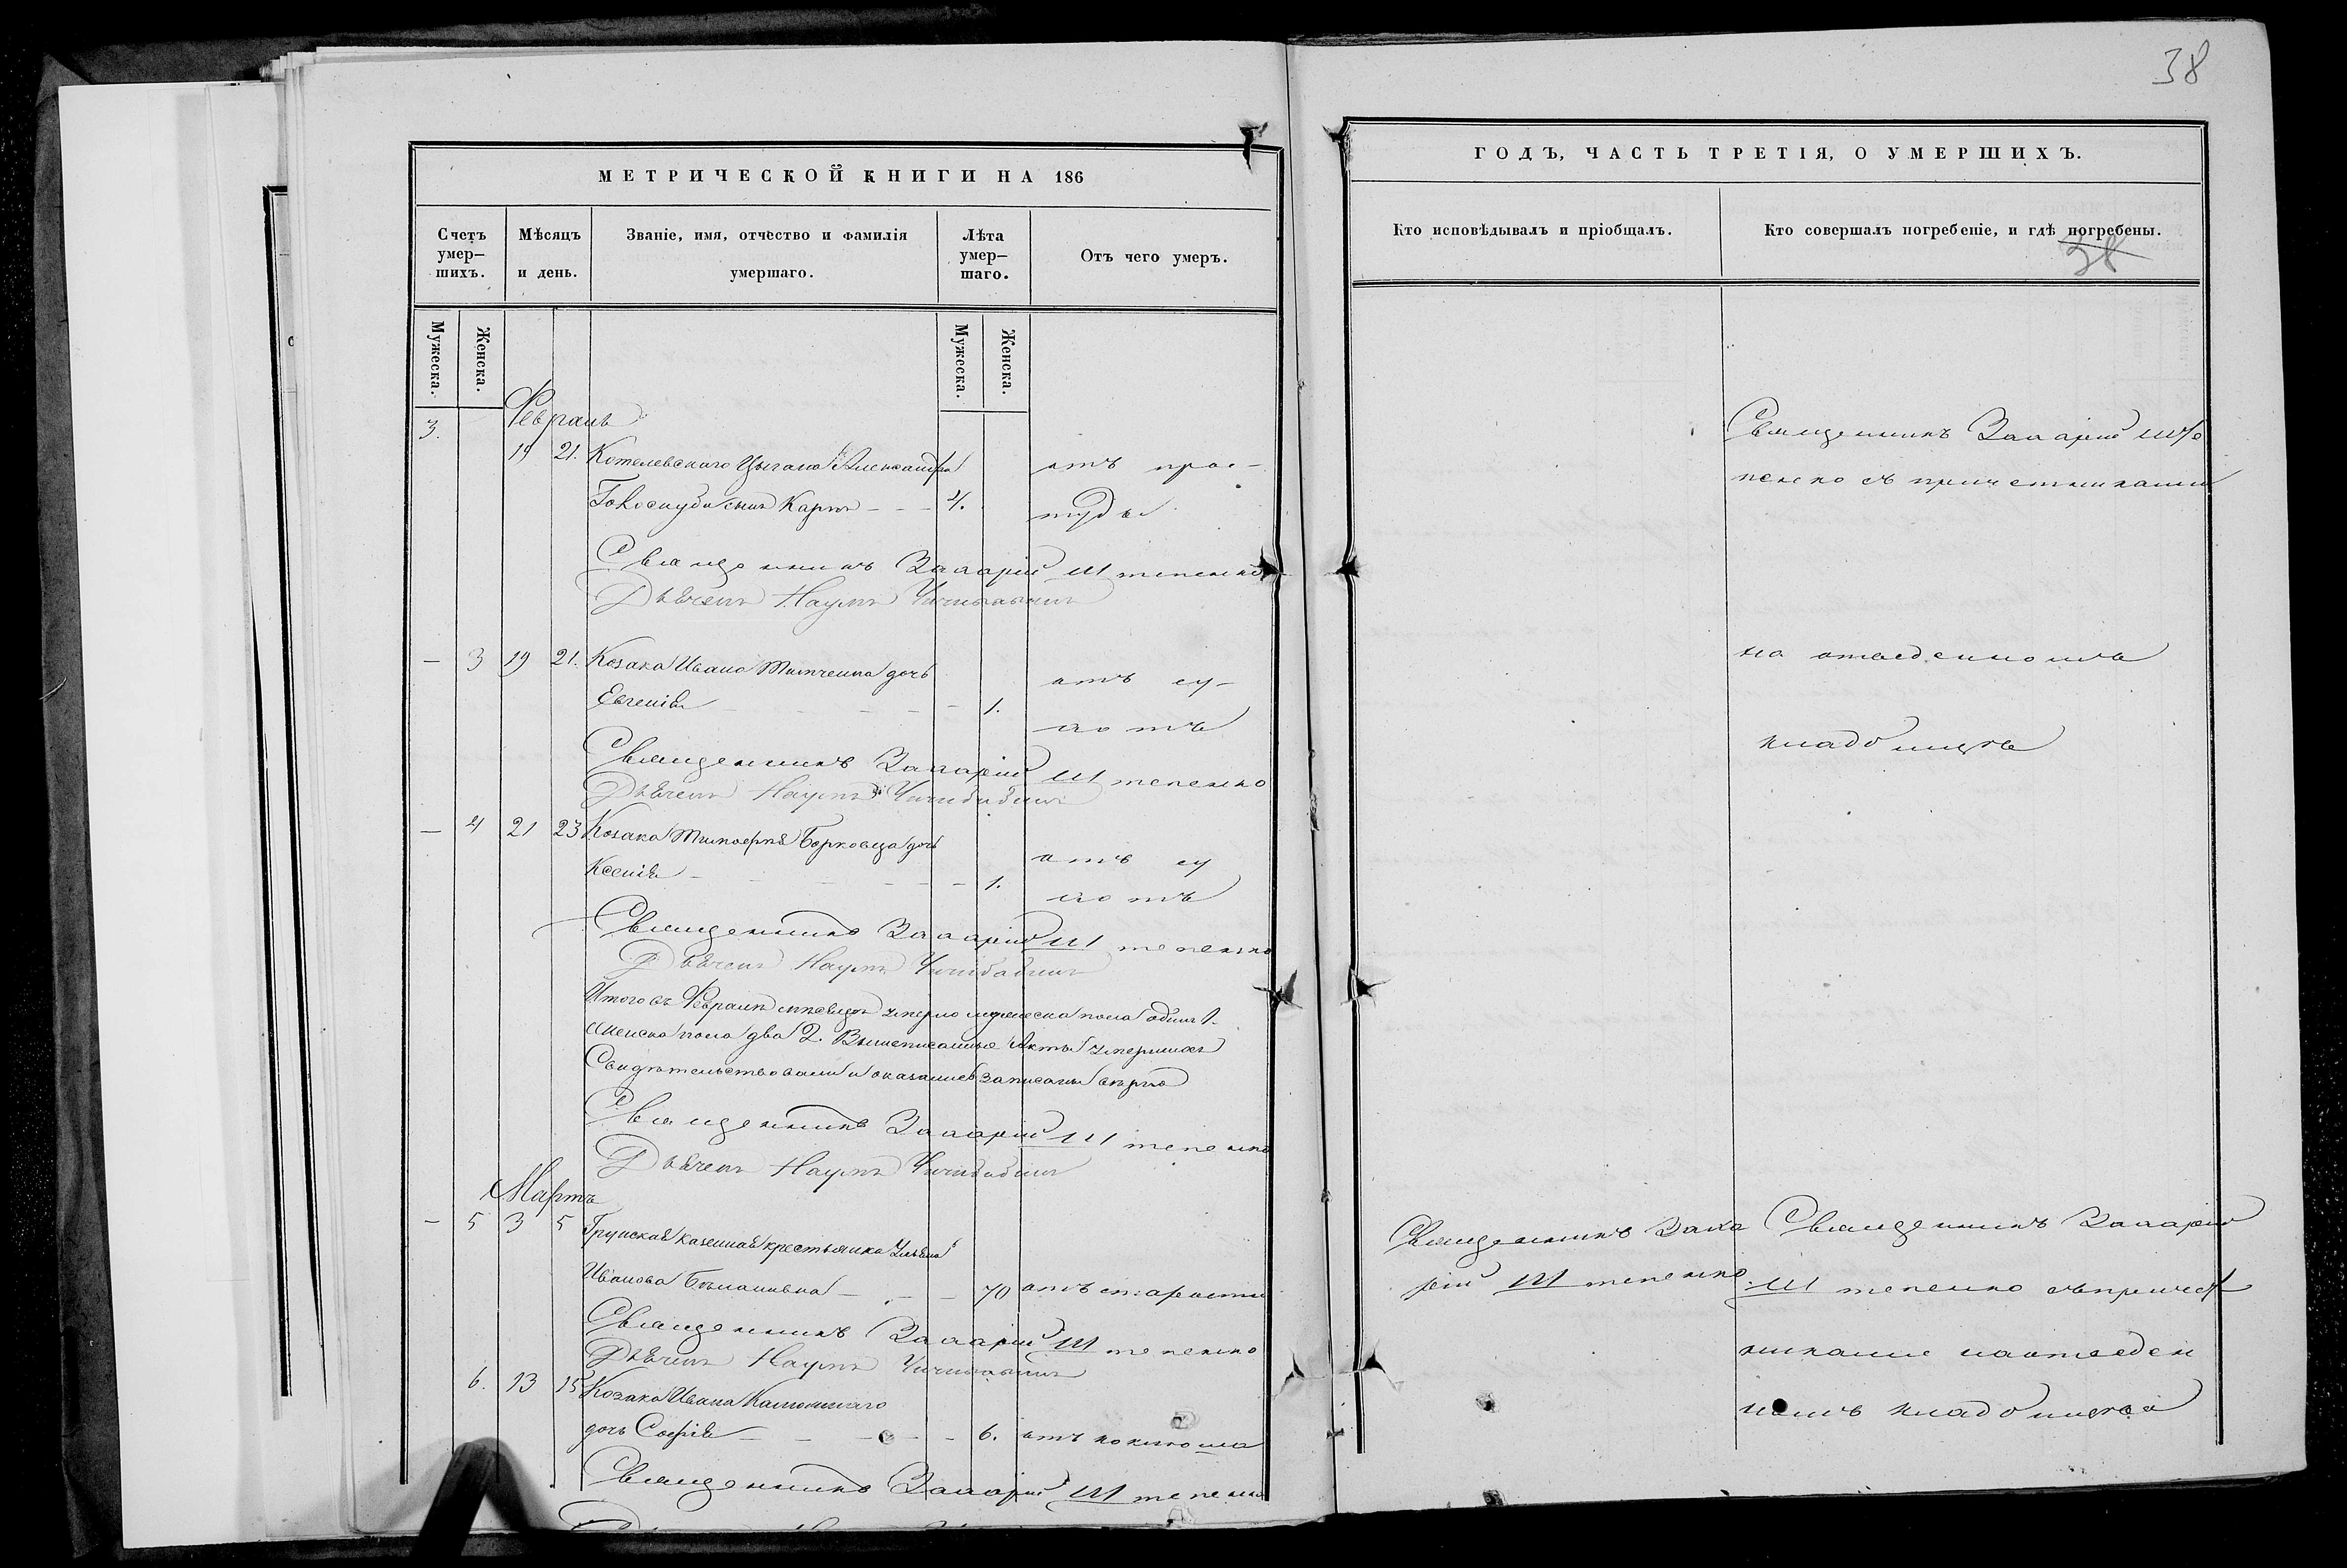 38
МЕТРИЧЕСКОЙ КНИГИ НА 186
Счетъ умер-шихъ.
Мѣсяцъ и день.
Званіе, имя, отчество и фамилія умершаго.
Лѣта умер-шаго.
Отъ чего умеръ.
Мужеска.
Женска.
Мужеска.
Женска.
Февраль
3.
19 21. Котелевского Цыгана Александра отъ прос-
сынъ Карпъ - - - 4. туды
Священникъ Захарій Штепенко
Наумъ
- 3 19 21. Козака Ивана дочь отъ су-
Евгенія - - - 1. хотъ
Священникъ Захарій Штепенко
Наумъ Чичибабинъ
- 4 21 23 Козака Тимоѳея Борковца дочь отъ су
Ксенія - - - 1. хотъ
Священникъ Захарій Штепенко
Наумъ Чичибабинъ
Итого въ Февралѣ мѣсяцѣ умерло мужеска пола одинъ 1.
женска пола два 2. Вышеписанные Акты умершихъ
Свидѣтельствовали и оказались записаны вѣрно
Священникъ Захарій Штепенко
Наумъ Чичибабинъ
Мартъ
- 5 3 5 Грунская казенная крестьянка
Иванова - - - 70 отъ старости
Священникъ Захарій Штепенко
Наумъ Чичибабинъ
6. 13 15 Козака Ивана
дочь Софія - - - 6. отъ
Священникъ Захарій Штепенко
ГОДЪ, ЧАСТЬ ТРЕТІЯ, О УМЕРШИХЪ.
Кто исповѣдывалъ и пріобщалъ.
Кто совершалъ погребеніе, и гдѣ погребены.
38
Священникъ Захарій Ште
пенко съ причетниками
на отведенномъ
кладбищѣ
Священникъ Заха
рій Штепенко.
Священникъ Захарій
Штепенко съ причет
никами на отведен
номъ кладбищѣ